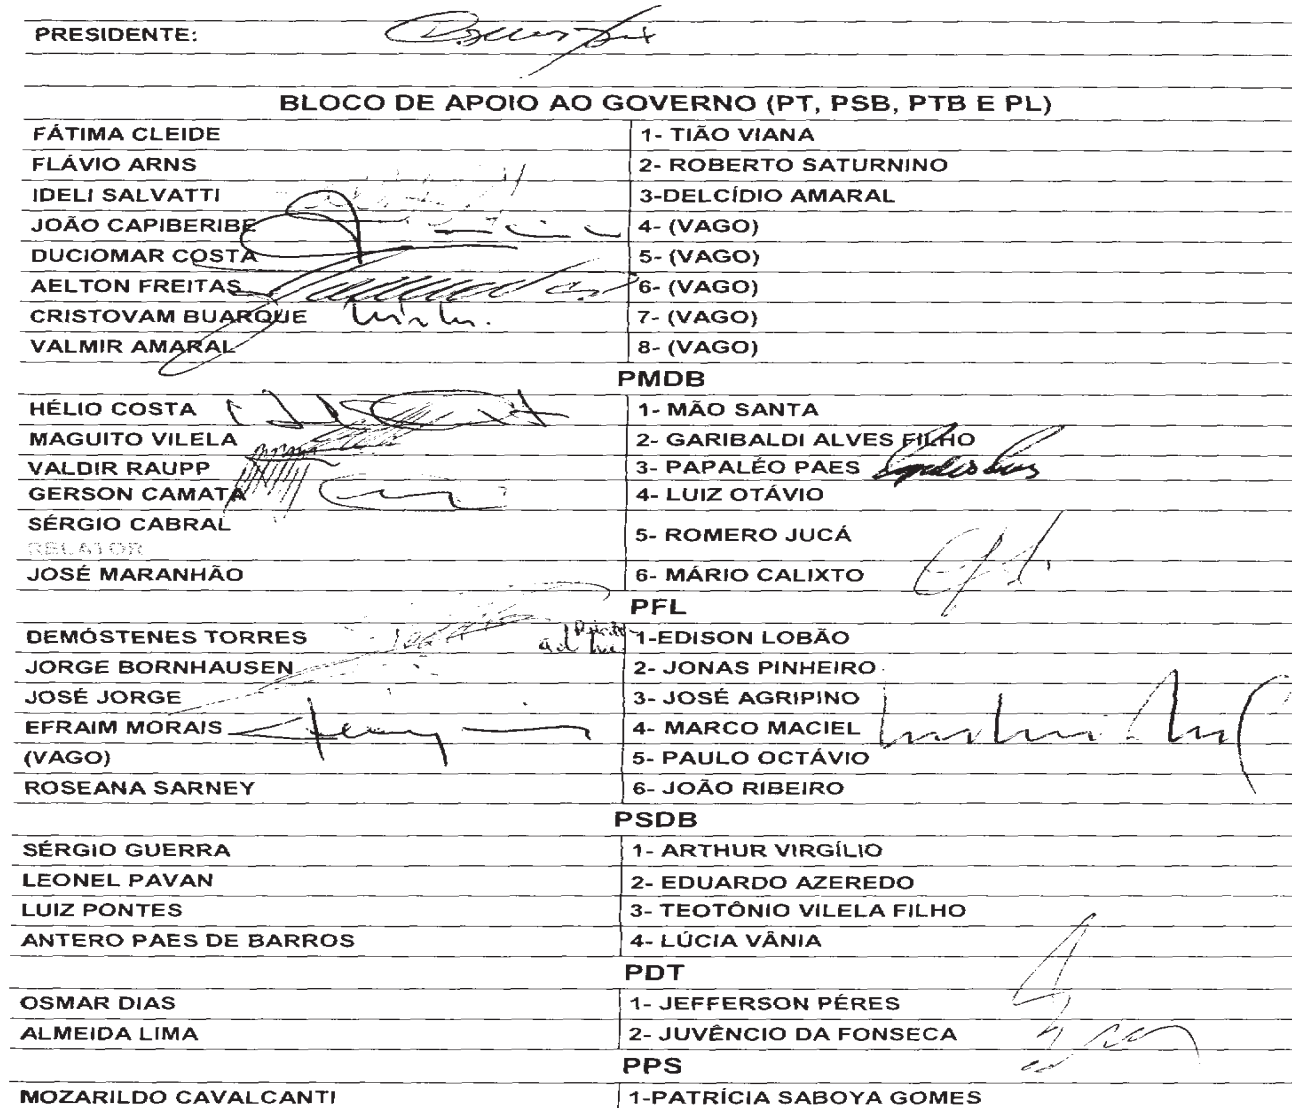 PRESIDENTE:
BLOCO DE APOIO AO GOVERNO (PT, PSB, PTB E PL)
FÁTIMA CLEIDE 1- TIÃO VIANA
FLÁVIO ARNS 2- ROBERTO SATURNINO
IDELI SALVATTI 3-DELCÍDIO AMARAL
JOÃO CAPIBERIBE 4- (VAGO)
DUCIOMAR COSTA 5- (VAGO)
AELTON FREITAS 6- (VAGO)
CRISTOVAM BUARQUE 7- (VAGO)
VALMIR AMARAL 8- (VAGO)
PMDB
HÉLIO COSTA 1- MÃO SANTA
MAGUITO VILELA 2- GARIBALDI ALVES FILHO
VALDIR RAUPP 3- PAPALÉO PAES
GERSON CAMATA 4- LUIZ OTÁVIO
SÉRGIO CABRAL
RELATOR 5- ROMERO JUCÁ
JOSÉ MARANHÃO 6- MÁRIO CALIXTO
PFL
DEMÓSTENES TORRES 1-EDISON LOBÃO
JORGE BORNHAUSEN 2- JONAS PINHEIRO
JOSÉ JORGE 3- JOSÉ AGRIPINO
EFRAIM MORAIS 4- MARCO MACIEL
(VAGO) 5- PAULO OCTÁVIO
ROSEANA SARNEY 6- JOÃO RIBEIRO
PSDB
SÉRGIO GUERRA 1- ARTHUR VIRGÍLIO
LEONEL PAVAN 2- EDUARDO AZEREDO
LUIZ PONTES 3- TEOTÔNIO VILELA FILHO
ANTERO PAES DE BARROS 4- LÚCIA VÂNIA
PDT
OSMAR DIAS 1- JEFFERSON PÉRES
ALMEIDA LIMA 2- JUVÊNCIO DA FONSECA
PPS
MOZARILDO CAVALCANTI 1-PATRÍCIA SABOYA GOMES